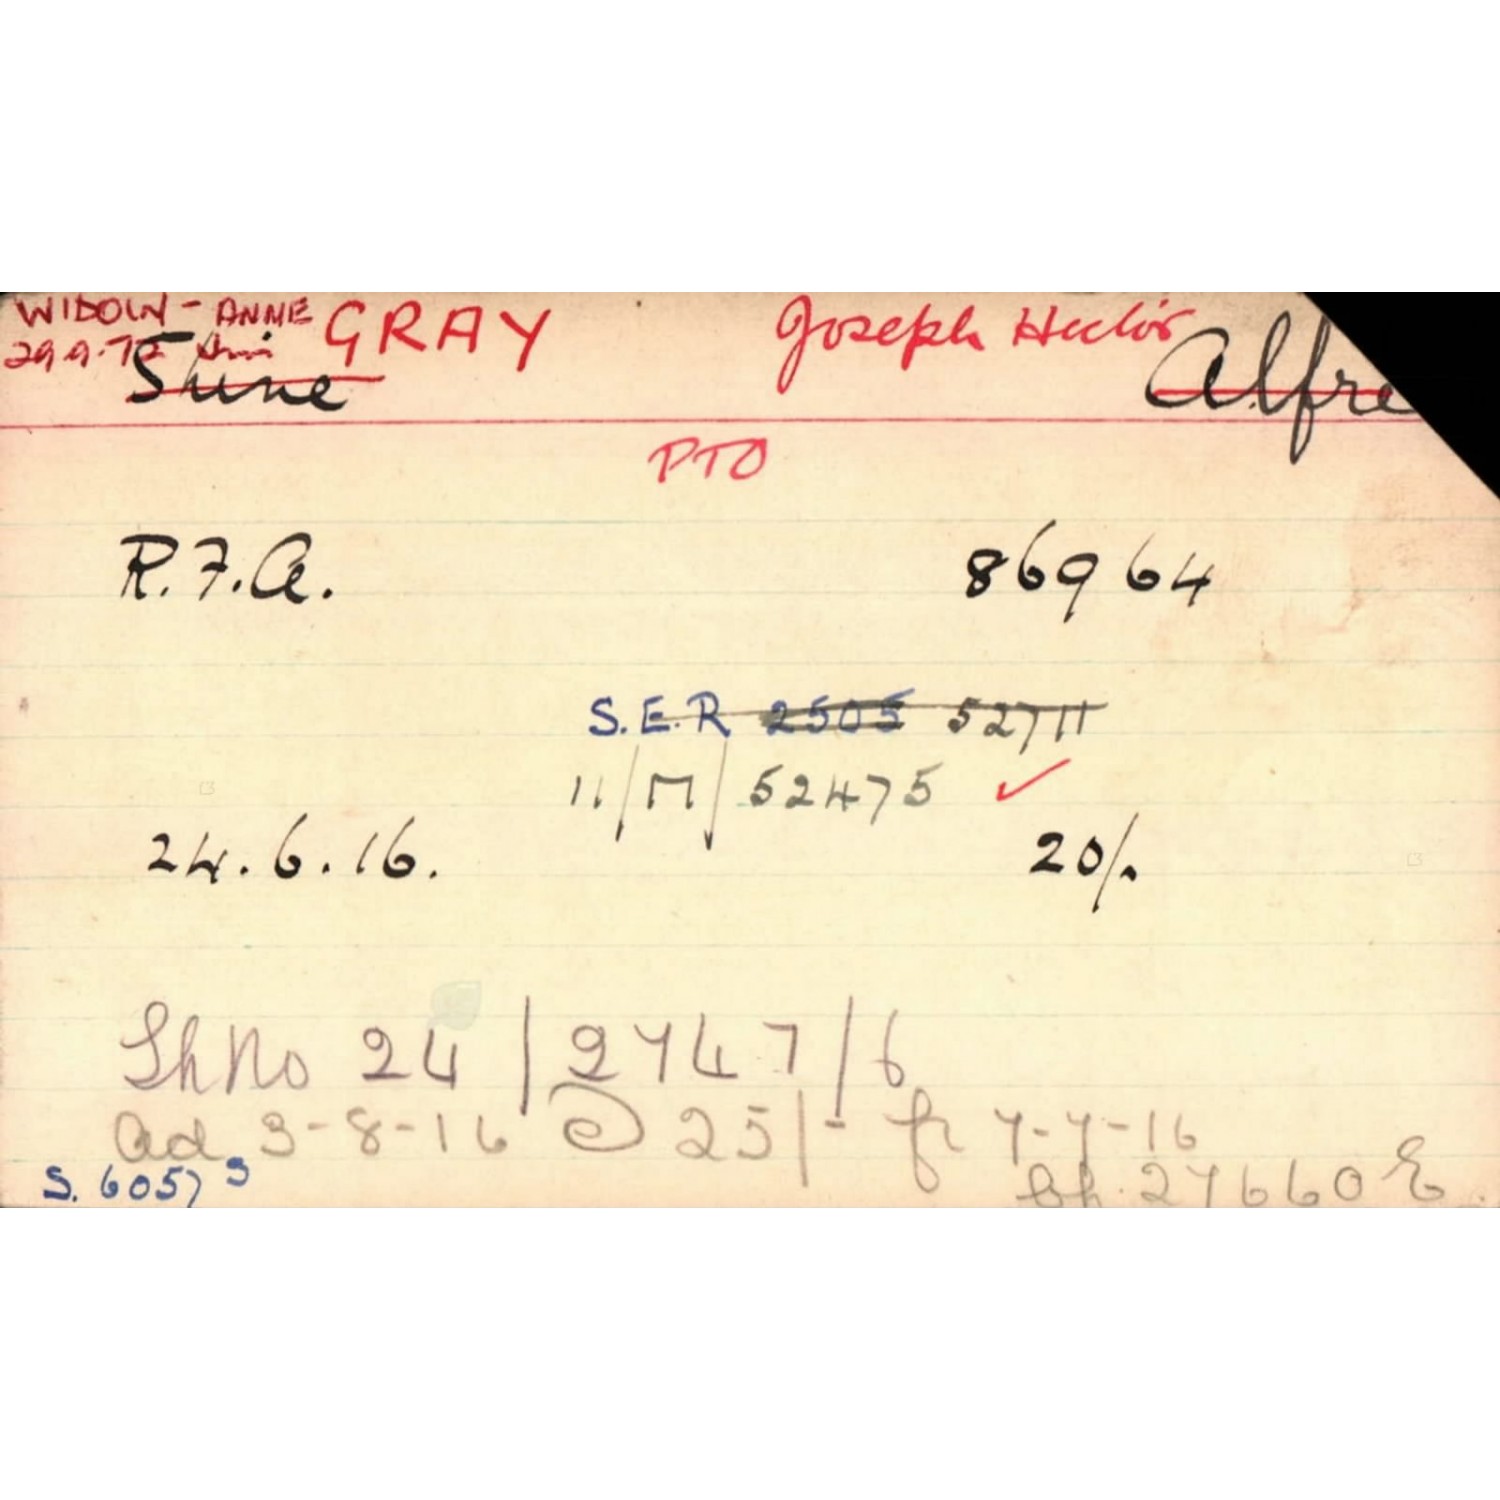 WIDOW - ANNE GRAY Joseph Hector
29.9.72
Sune Alfre
PTO
R.F.A. 86964
S.E.R 2505 52711
11/M/ 52475 ✓
24.6.16. 20/-
Sh No 24/2747/6
ad 3-8-16 @ 25/- fr 7-7-16
S. 6057 3 Sh. 27660 E